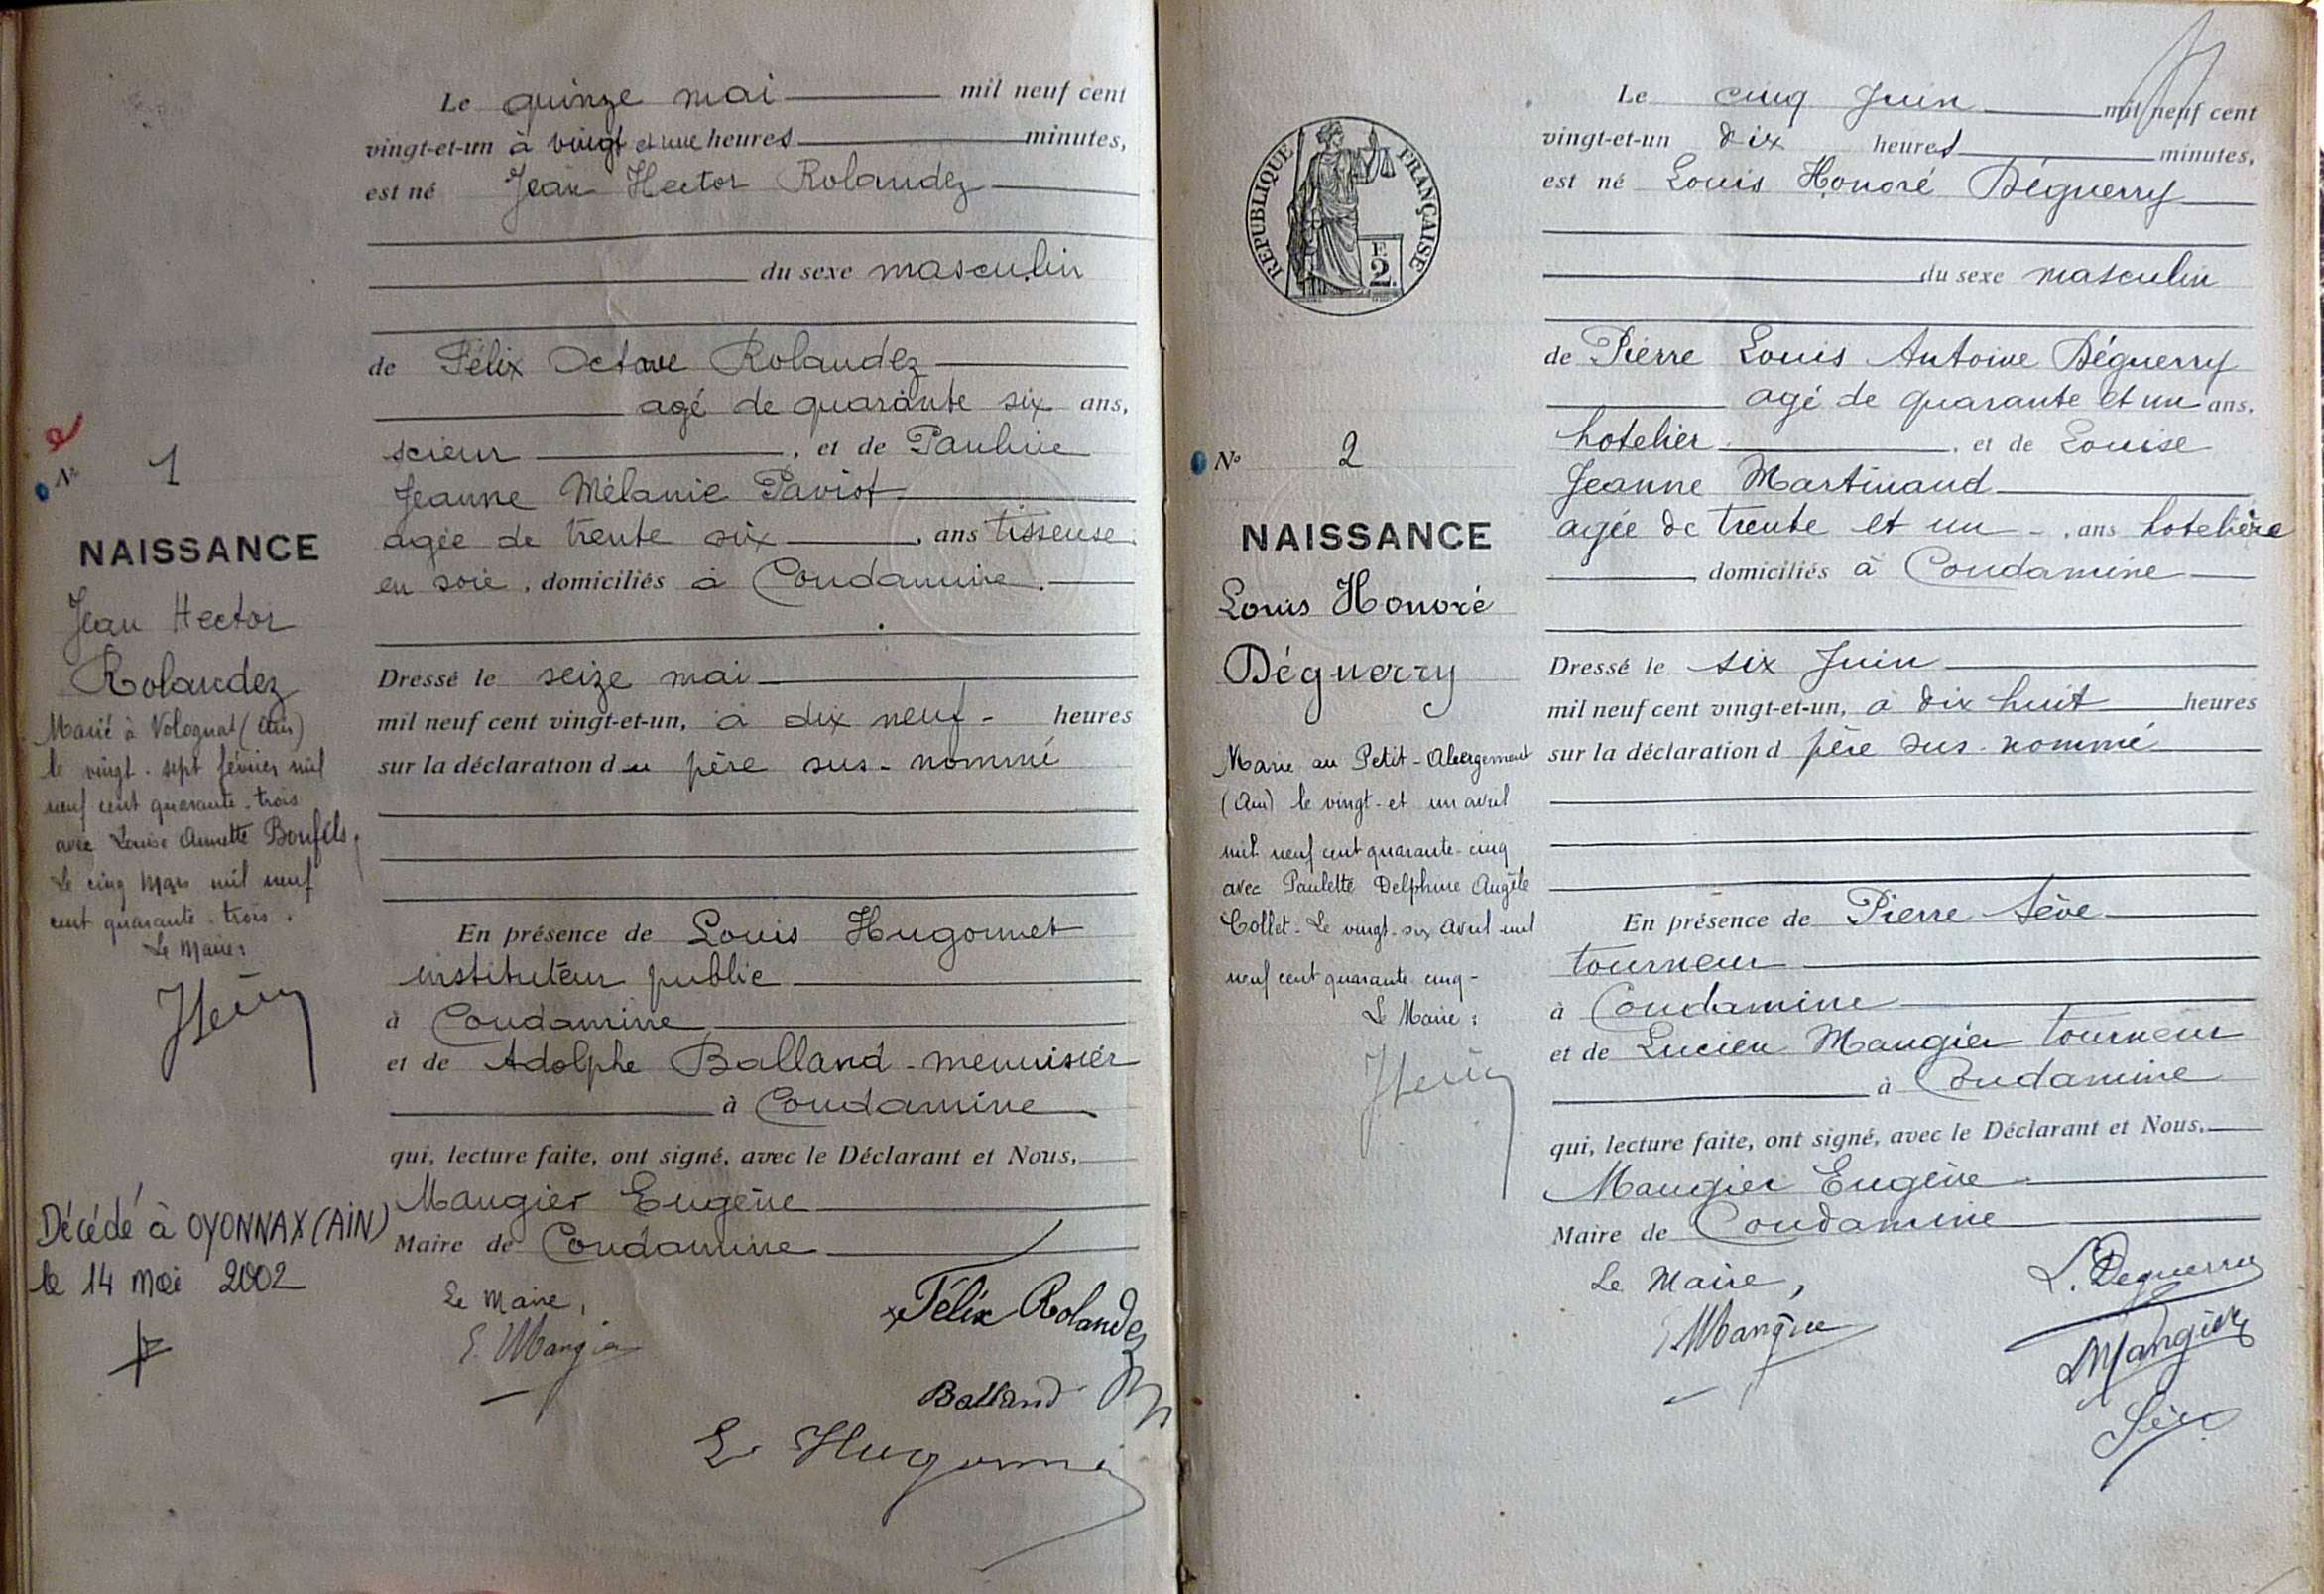 Le quinze mai mil neuf cent
vingt-et-un à vingt et une heures minutes,
est né Jean Hector Rolandez
du sexe masculin
de Félix Octave Rolandez
agé de quarante six ans,
scieur , et de Pauline
Jeanne Mélanie Paviot
agée de trente six , ans tisseuse
en soie , domiciliés à Condamine.
Dressé le seize mai
mil neuf cent vingt-et-un, à dix neuf - heures
sur la déclaration du père sus-nommé
En présence de Louis Hugonnet
instituteur public
à Condamine
et de Adolphe Balland - menuisier
à Condamine
qui, lecture faite, ont signé, avec le Déclarant et Nous,
Maugier Eugène
Maire de Condamine
Le Maire,
E. Mangier
Félix Rolandez
Balland
L Hugonnet
No 1
NAISSANCE
Jean Hector
Rolandez
Marié à Volognat (Ain)
le vingt-sept février mil
neuf cent quarante-trois
avec Louise Annette Bonfils.
Le cinq Mars mil neuf
cent quarante-trois.
Le Maire:
Décédé à OYONNAX (AIN)
le 14 mai 2002
REPUBLIQUE FRANÇAISE
F.
2.
No 2
NAISSANCE
Louis Honoré
Déguerry
Marié au Petit-Abergement
(Ain) le vingt-et un avril
mil neuf cent quarante-cinq
avec Paulette Delphine Angèle
Collet. Le vingt-six Avril mil
neuf cent quarante cinq-
Le Maire:
Le cinq Juin mil neuf cent
vingt-et-un dix heures minutes,
est né Louis Honoré Déguerry
du sexe masculin
de Pierre Louis Antoine Déguerry
agé de quarante et un ans,
hotelier , et de Louise
Jeanne Martinaud
agée de trente et un - , ans hotelière
domiciliés à Condamine
Dressé le six Juin
mil neuf cent vingt-et-un, à dix huit heures
sur la déclaration d père sus-nommé
En présence de Pierre Sève
tourneur
à Condamine
et de Lucien Maugier tourneur
à Condamine
qui, lecture faite, ont signé, avec le Déclarant et Nous,
Maugier Eugène
Maire de Condamine
Le Maire,
L. Deguerry
E Mangier
LMangier
Sève